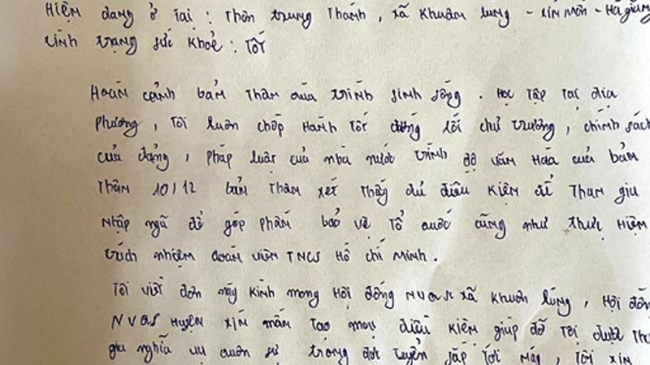 Hiện đang ở tại : Thôn trung Thành , xã Khuôn lung - xín Mần - Hà giang
tình trạng sức khoẻ : Tốt
Hoàn cảnh bản thân của trình sinh sống . Học tập tại địa
phương , Tôi luôn chấp Hành Tốt đường lối chủ trương , chính sách
của đảng , pháp luật của nhà nước trình độ văn Hóa của bản
Thân 10/12 bản Thân xét Thấy đủ điều Kiện để Tham gia
Nhập ngũ để góp phần bảo vệ Tổ quốc cũng như thực Hiện
trách nhiệm đoàn viên TNCS Hồ chí Minh .
Tôi viết đơn này Kính mong Hội đồng NVQS xã Khuôn lúng , Hội đồn
NVQS Huyện xín mần tạo mọi điều Kiện giúp đỡ Tôi được Th
gia nghĩa vụ quân sự trong đợt tuyển sắp tới này , Tôi xin